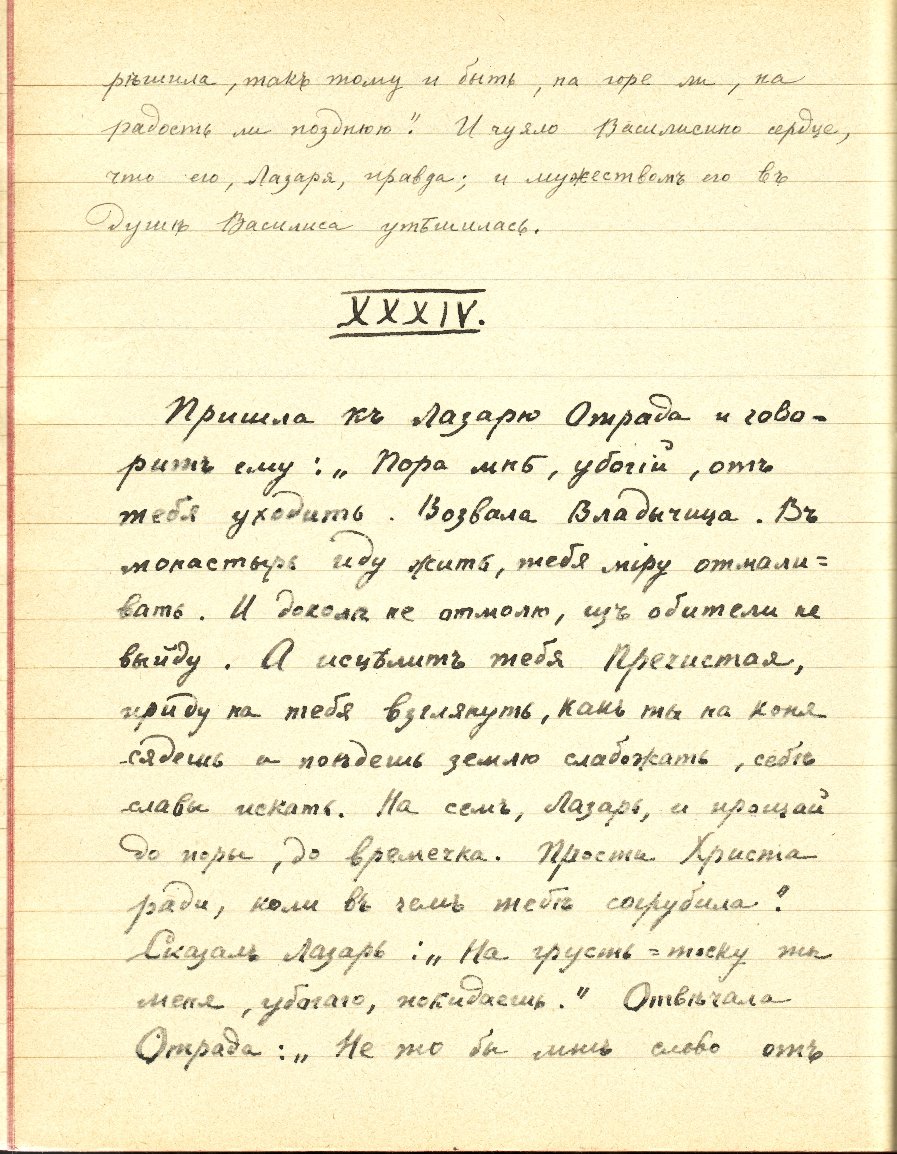 рѣшила, такъ тому и быть, на горе ли, на
радость ли позднюю". И чуяло Василисино сердце,
что его, Лазаря, правда; и мужествомъ его въ
душѣ Василиса утѣшилась.
XXXIV.
Пришла къ Лазарю Отрада и гово-
ритъ ему: „Пора мнѣ, убогій, отъ
тебя уходить. Возвала Владычица. Въ
монастырь иду жить, тебя міру отмали=
вать. И доколѣ не отмолю, изъ обители не
выйду. А исцѣлитъ тебя Пречистая,
прійду на тебя взглянуть, какъ ты на коня
сядешь и поѣдешь землю слабожать, себѣ
славы искать. На семъ, Лазарь, и прощай
до поры, до времечка. Прости Христа
ради, коли въ чемъ тебѣ согрубила".
Сказалъ Лазарь: „На грусть=тоску ты
меня, убогаго, покидаешь." Отвѣчала
Отрада: „Не то бы мнѣ слово отъ